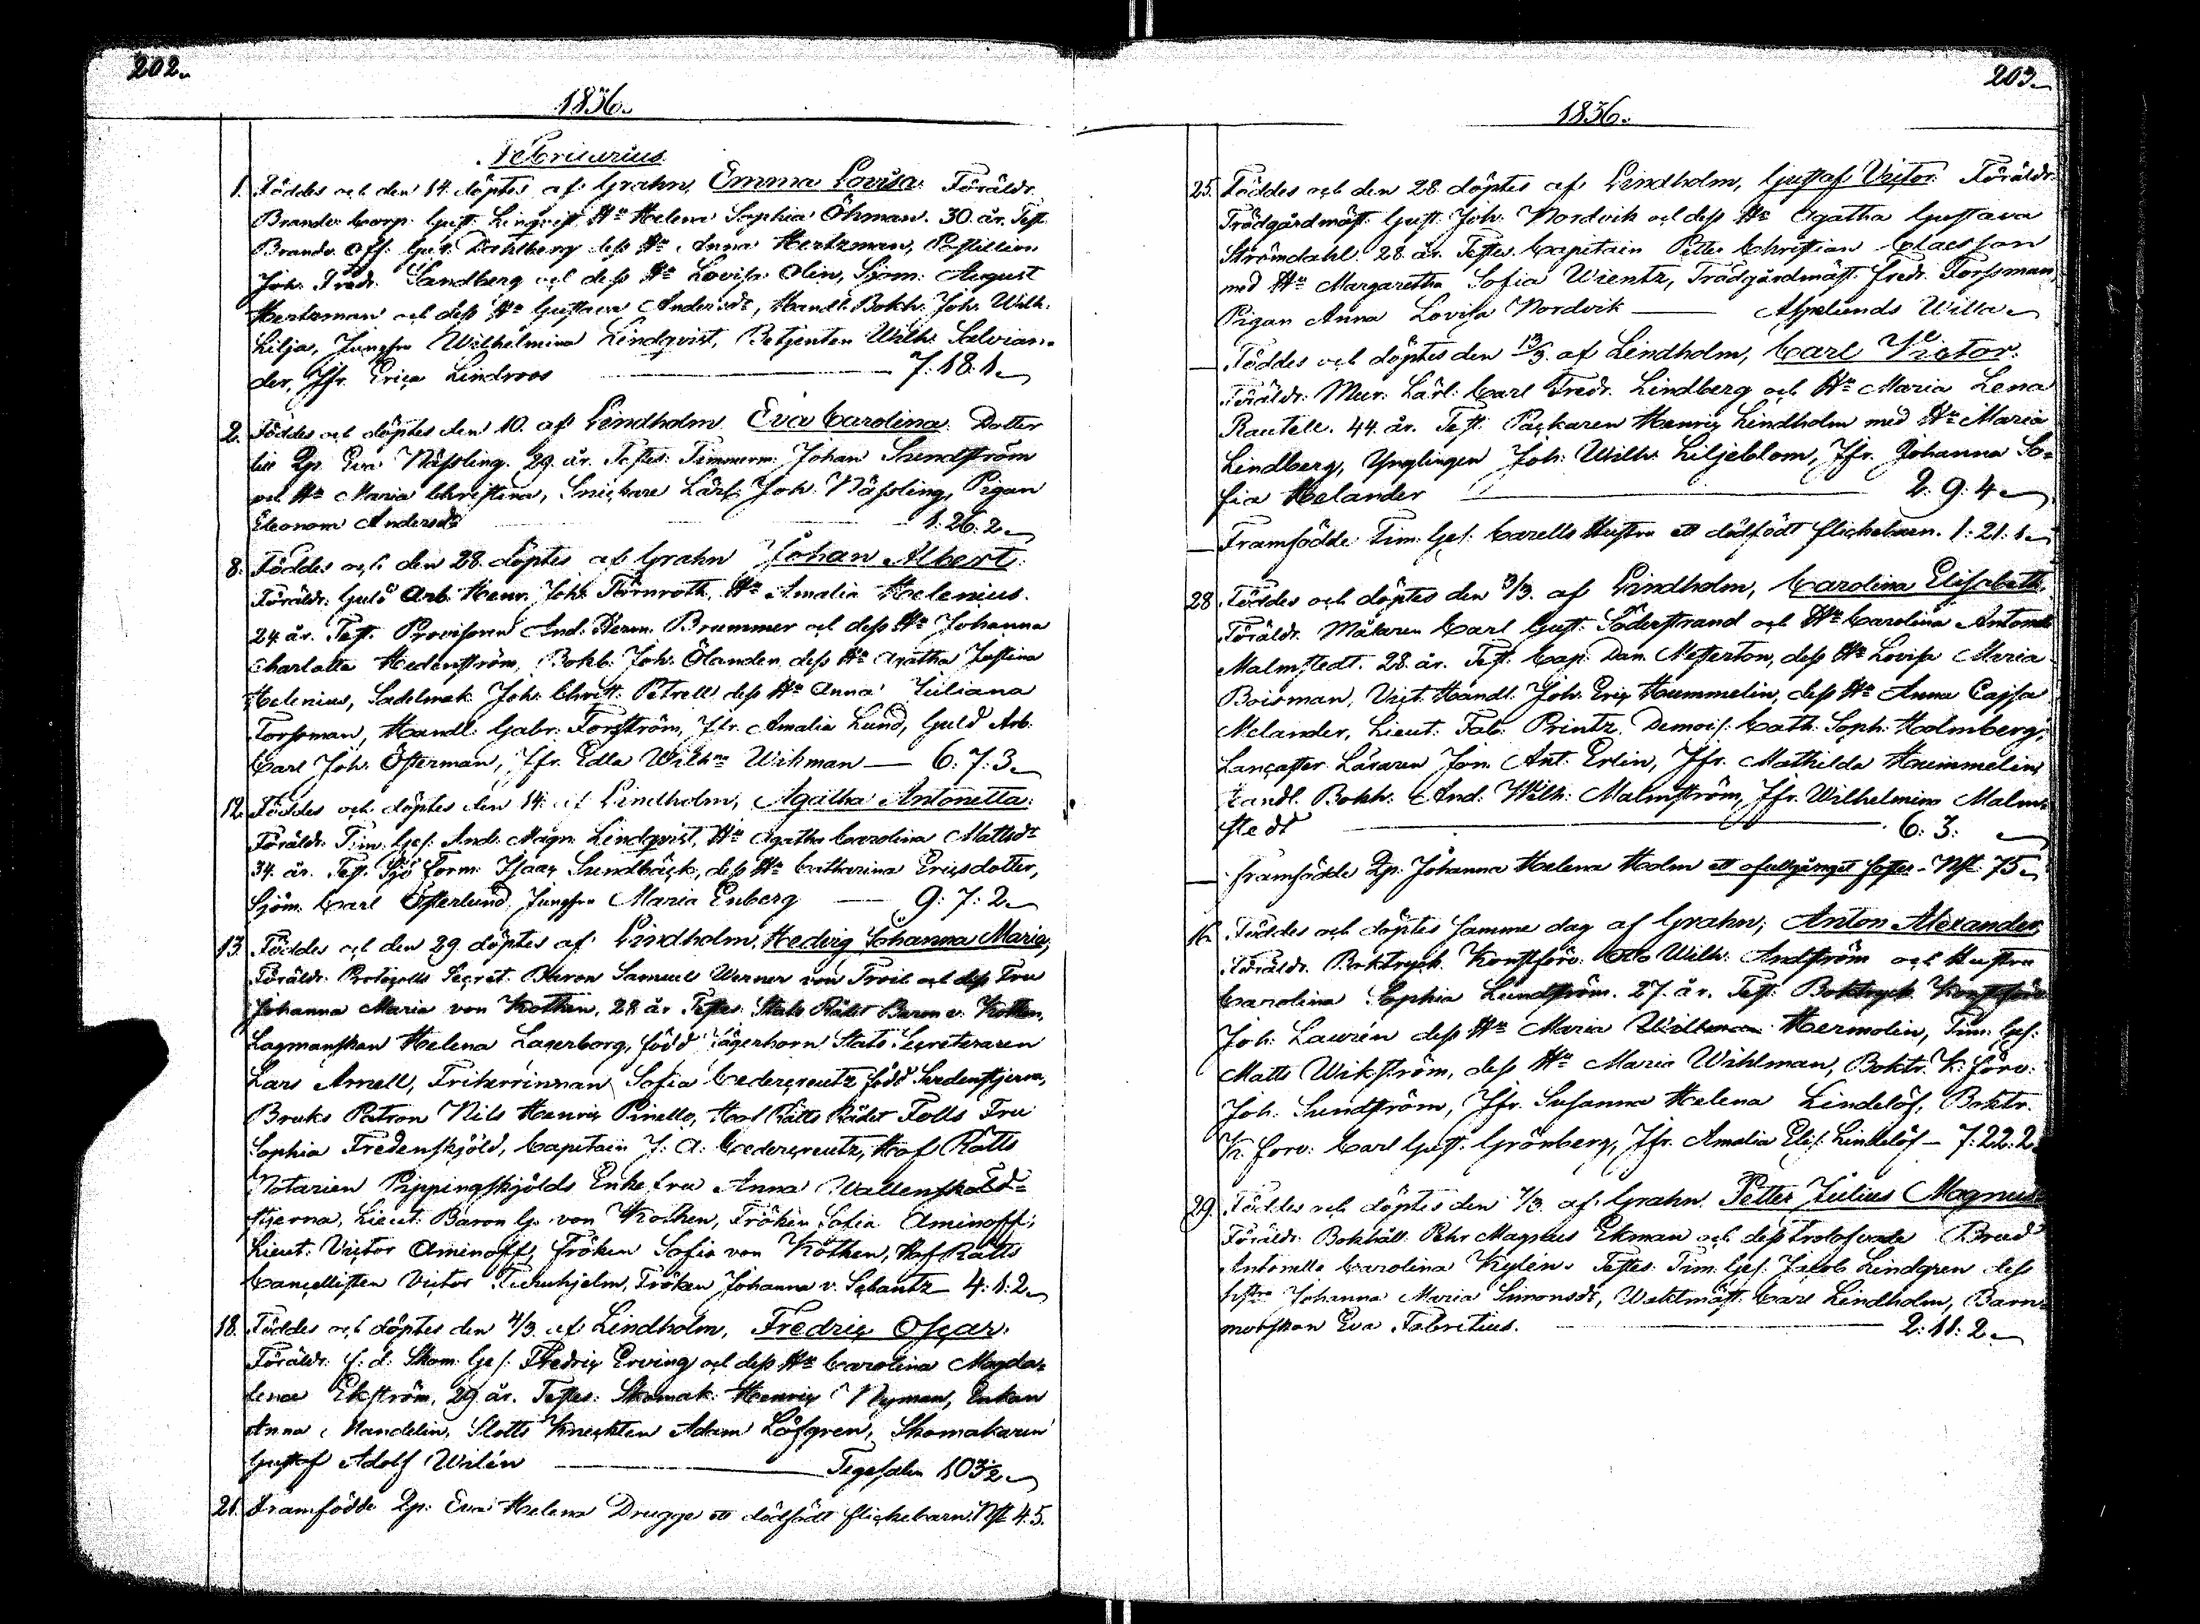 202.
1836.
Februarius
1. Föddes och den 14. döptes af Grahn, Emma Lovisa. Föräldr.
Brandv. Corp. Gust. Lindqvist, Hu Helena Sophia Öhman. 30. år. Test.
Brandv. Off. Gust. Dahlberg dess Hu Anna Hertzman, Postillion
Joh. Fredr. Sandberg och dess Hu Lovisa Olin, Sjöm. August
Hertzman och dess Hu Gustava Andersdr, Handl. Bokh. Joh. Wilh.
Lilja, Jungfru Wilhelmina Lindqvist, Betjenten Wilh. Salvian-
der, Jfr. Erica Lindroos — 7. 18. 1.
2. Föddes och döptes den 10. af Lindholm Eva Carolina. Dotter
till Qp. Eva Nässling. 29. år. Testes: Timmerm. Johan Sundström
och Hu Maria Christina, Snickare Lärl. Joh. Nässling, Pigan
Eleonora Andersdr — 1. 26. 2.
8. Föddes och den 28. döptes af Grahn Johan Albert.
Föräldr. Guld Arb. Henr. Joh. Törnroth, Hu Amalia Helenius.
24. år. Test. Provisorn And. Herm. Brummer och dess Hu Johanna
Charlotta Hedenström, Bokb. Joh. Ölander, dess Hu Agatha Justina
Helenius, Sadelmak. Joh. Christ. Petrell dess Hu Anna Juliana
Forssman, Handl. Gabr. Forsström, Jfr. Amalia Lund, Guld Arb.
Carl Joh. Österman, Jfr. Edla Wilhna Wikman — 6. 7. 3.
12. Föddes och döptes den 14. af Lindholm, Agatha Antonetta.
Föräldr. Tim. Ges. And. Magn. Lindqvist, Hu Agatha Carolina Mattsdr
34. år. Test. Sjö Form. Isaac Sundbäck, dess Hu Catharina Ericsdotter,
Sjöm. Carl Österlund, Jungfru Maria Enberg — 9. 7. 2.
13. Föddes och den 29. döptes af Lindholm, Hedvig Johanna Maria,
Föräldr. Protocolls Secret. Baron Samuel Werner von Troil och dess Fru
Johanna Maria von Kothen, 28 år. Testes: Stats Rådet Baron v. Kothen,
Lagmanskan Helena Lagerborg, född Jägerhorn Stats Secreteraren
Lars Arnell, Friherrinnan Sofia Cedercreutz född Svedenstjerna,
Bruks Patron Nils Henric Pinello, Hof Rätts Rådet Tolls Fru
Sophia Fredenskjöld, Capitain J: A: Cedercreutz, Hof Rätts
Notarien Pippingskjölds Enkefru Anna Wallensköld-
stjerna, Lieut. Baron G. von Kothen, Fröken Sofia Aminoff,
Lieut. Victor Aminoff, Fröken Sofia von Köthen, Hof Rätts
Cancellisten Victor Furuhjelm, Fröken Johanna v. Schantz — 4. 1. 2.
18. Föddes och döptes den 4/3. af Lindholm, Fredric Oscar.
Föräldr. f. d. Skom. Ges. Fredric Erving och dess Hu Carolina Magda-
lena Ekström, 29. år. Testes: Skomak. Henric Nyman, Enkan
Anna Mandelin, Slotts Knechten Adam Löfgren, Skomakaren
Gustaf Adolf Wilén — Tegelsalen 103½
21. Framfödde Qp. Eva Helena Drugge ett dödfödt flickebarn. Nst 45.
203.
1836.
25. Föddes och den 28. döptes af Lindholm, Gustaf Victor. Föräldr.
Trädgårdmäst. Gust. Joh. Nordvik och dess Hu Agatha Gustava
Strömdahl. 28. år. Testes. Capitain Petter Christian Claesson
med Hu Margaretha Sofia Wientz, Trädgårdmäst. Fredr. Forssman,
Pigan Anna Lovisa Nordvik — Aspelunds Willa
— Föddes och döptes den 13/3. af Lindholm, Carl Victor.
Föräldr. Mur. Lärl. Carl Fredr. Lindberg och Hu Maria Lena
Rautell. 44. år. Test. Packaren Henric Lindholm med Hu Maria
Lindberg, Ynglingen Joh. Wilh. Liljeblom, Jfr. Johanna So-
fia Helander — 2. 9. 4
— Framfödde Tim. Ges. Carells Hustru ett dödfödt flickebarn. 1. 21. 1.
28. Föddes och döptes den /3. af Lindholm, Carolina Elisabeth.
Föräldr. Målaren Carl Gust. Söderstrand och Hu Carolina Antonet.
Malmstedt. 28. år. Test. Cap. Dan. Messerton, dess Hu Lovisa Maria
Boisman, Vict. Handl. Joh. Eric Hummelin, dess Hu Anna Cajsa
Melander, Lieut. Fab. Printz, Demois. Cath. Soph. Holmberg,
Lancaster Läraren Jon. Ant. Erlin, Jfr. Mathilda Hummelin,
Handl. Bokh. And. Wilh. Malmström, Jfr. Wilhelmina Malm-
stedt — 6. 3.
— Framfödde Qp. Johanna Helena Holm ett ofullgånget foster. Nst 75
16. Föddes och döptes samma dag af Grahn, Anton Alexander,
Föräldr. Boktryck. Konstförv. Otto Wilh. Andström och Hustru
Carolina Sophia Lundström. 27. år. Test. Boktryck. Konstförv
Joh. Laurén dess Hu Maria Hermolin, Tim. Ges.
Matts Wikström, dess Hu Maria Wihlman, Boktr. K. förv.
Joh. Sundström, Jfr. Susanna Helena Lindelöf, Boktr.
K. förv. Carl Gust. Grönberg, Jfr. Amalia Elis. Lindelöf — 7. 22. 2.
29. Föddes och döptes den 7/3. af Grahn. Petter Julius Magnus
Föräldr. Bokhåll. Pehr Magnus Ekman och dess trolofvade Brud
Antonetta Carolina Kylén. Testes. Tim. Ges. Jacob Lindgren dess
hstru Johanna Maria Simonsdr, Waktmäst. Carl Lindholm, Barn-
morskan Eva Fabritius. — 2. 11. 2.